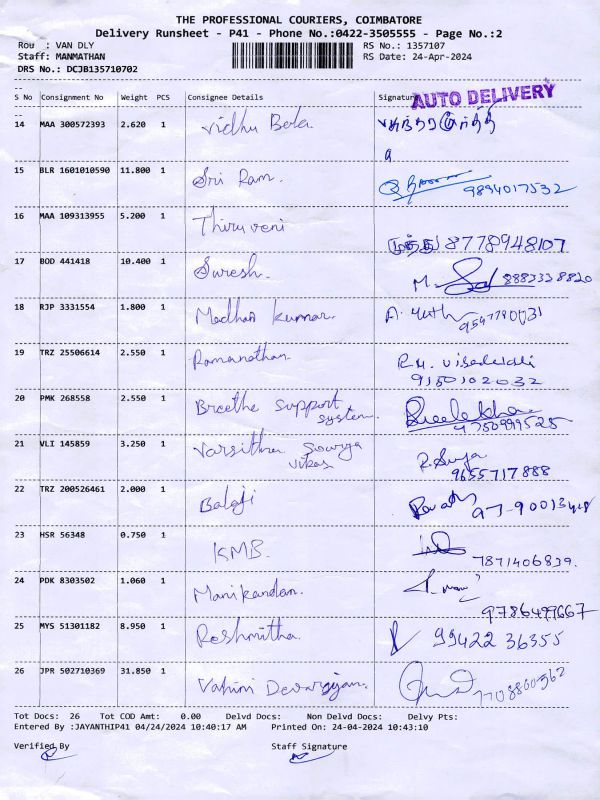 THE PROFESSIONAL COURIERS, COIMBATORE
Delivery Runsheet - P41 - Phone No.:0422-3505555 - Page No.:2
Rou : VAN DLY RS No.: 1357107
Staff: MANMATHAN RS Date: 24-Apr-2024
DRS No.: DCJB135710702
S No Consignment No Weight PCS Consignee Details Signature
AUTO DELIVERY
14 MAA 300572393 2.620 1 Vidhu Bala
15 BLR 1601010590 11.800 1 Sri Ram. 9894017532
16 MAA 109313955 5.200 1 Thiruveni
முத்து 8778948107
17 BOD 441418 10.400 1 Suresh.
M. 8883338820
18 RJP 3331554 1.800 1 Madhan Kumar.
19 TRZ 25506614 2.550 1 Ramanathan
9150102032
20 PMK 268558 2.550 1 Breethe support
system.
4750999525
21 VLI 145859 3.250 1 Varsithra Sourya
vikas R. Surya
9655717888
22 TRZ 200526461 2.000 1 Balaji
23 HSR 56348 0.750 1 KMB.
7871406839.
24 PDK 8303502 1.060 1 Manikandan.
9786499667
25 MYS 51301182 8.950 1 Reshmitha. 99422 36355
26 JPR 502710369 31.850 1 Vahini Devarajan.
7708860562
Tot Docs: 26 Tot COD Amt: 0.00 Delvd Docs: Non Delvd Docs: Delvy Pts:
Entered By :JAYANTHIP41 04/24/2024 10:40:17 AM Printed On: 24-04-2024 10:43:10
Verified By Staff Signature